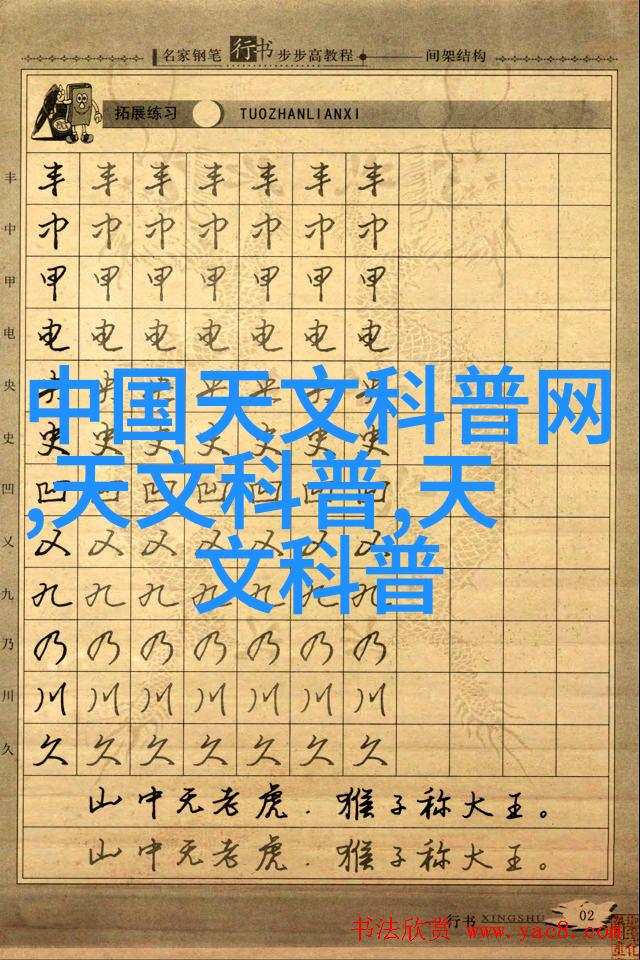 名家钢笔行书步步高教程 间架结构
拓展练习 TUOZHANLIANXI
丰 丰 丰 丰 丰 丰 丰 丰
中 中 中 中 中 中 中 中
甲 甲 甲 甲 甲 甲 甲 甲
电 电 电 电 电 电 电 电
央 央 央 央 央 央 央 央
中国天文科普网
史 史 史 史 史 史 史 史
凹 凹 凹 凹 凹 凹 凹 凹
,天文科普,天
乂 乂 乂 乂 乂 乂 乂 乂
文科普
九 九 九 九 九 九 九 九
乃 乃 乃 乃 乃 乃 乃 乃
川 川 川 川 川 川 川 川
久 久 久 久 久 久 久 久
山中无老虎.猴子称大王。
山中无老虎.猴子称大王。
行书 XINGSHU 02
书法欣赏 www.yac8.com